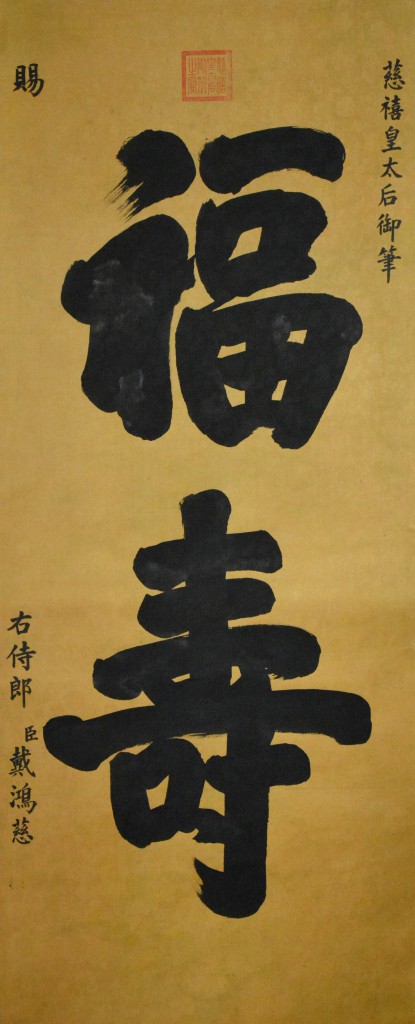 慈禧皇太后御筆
福壽
賜
右侍郎 臣戴鴻慈